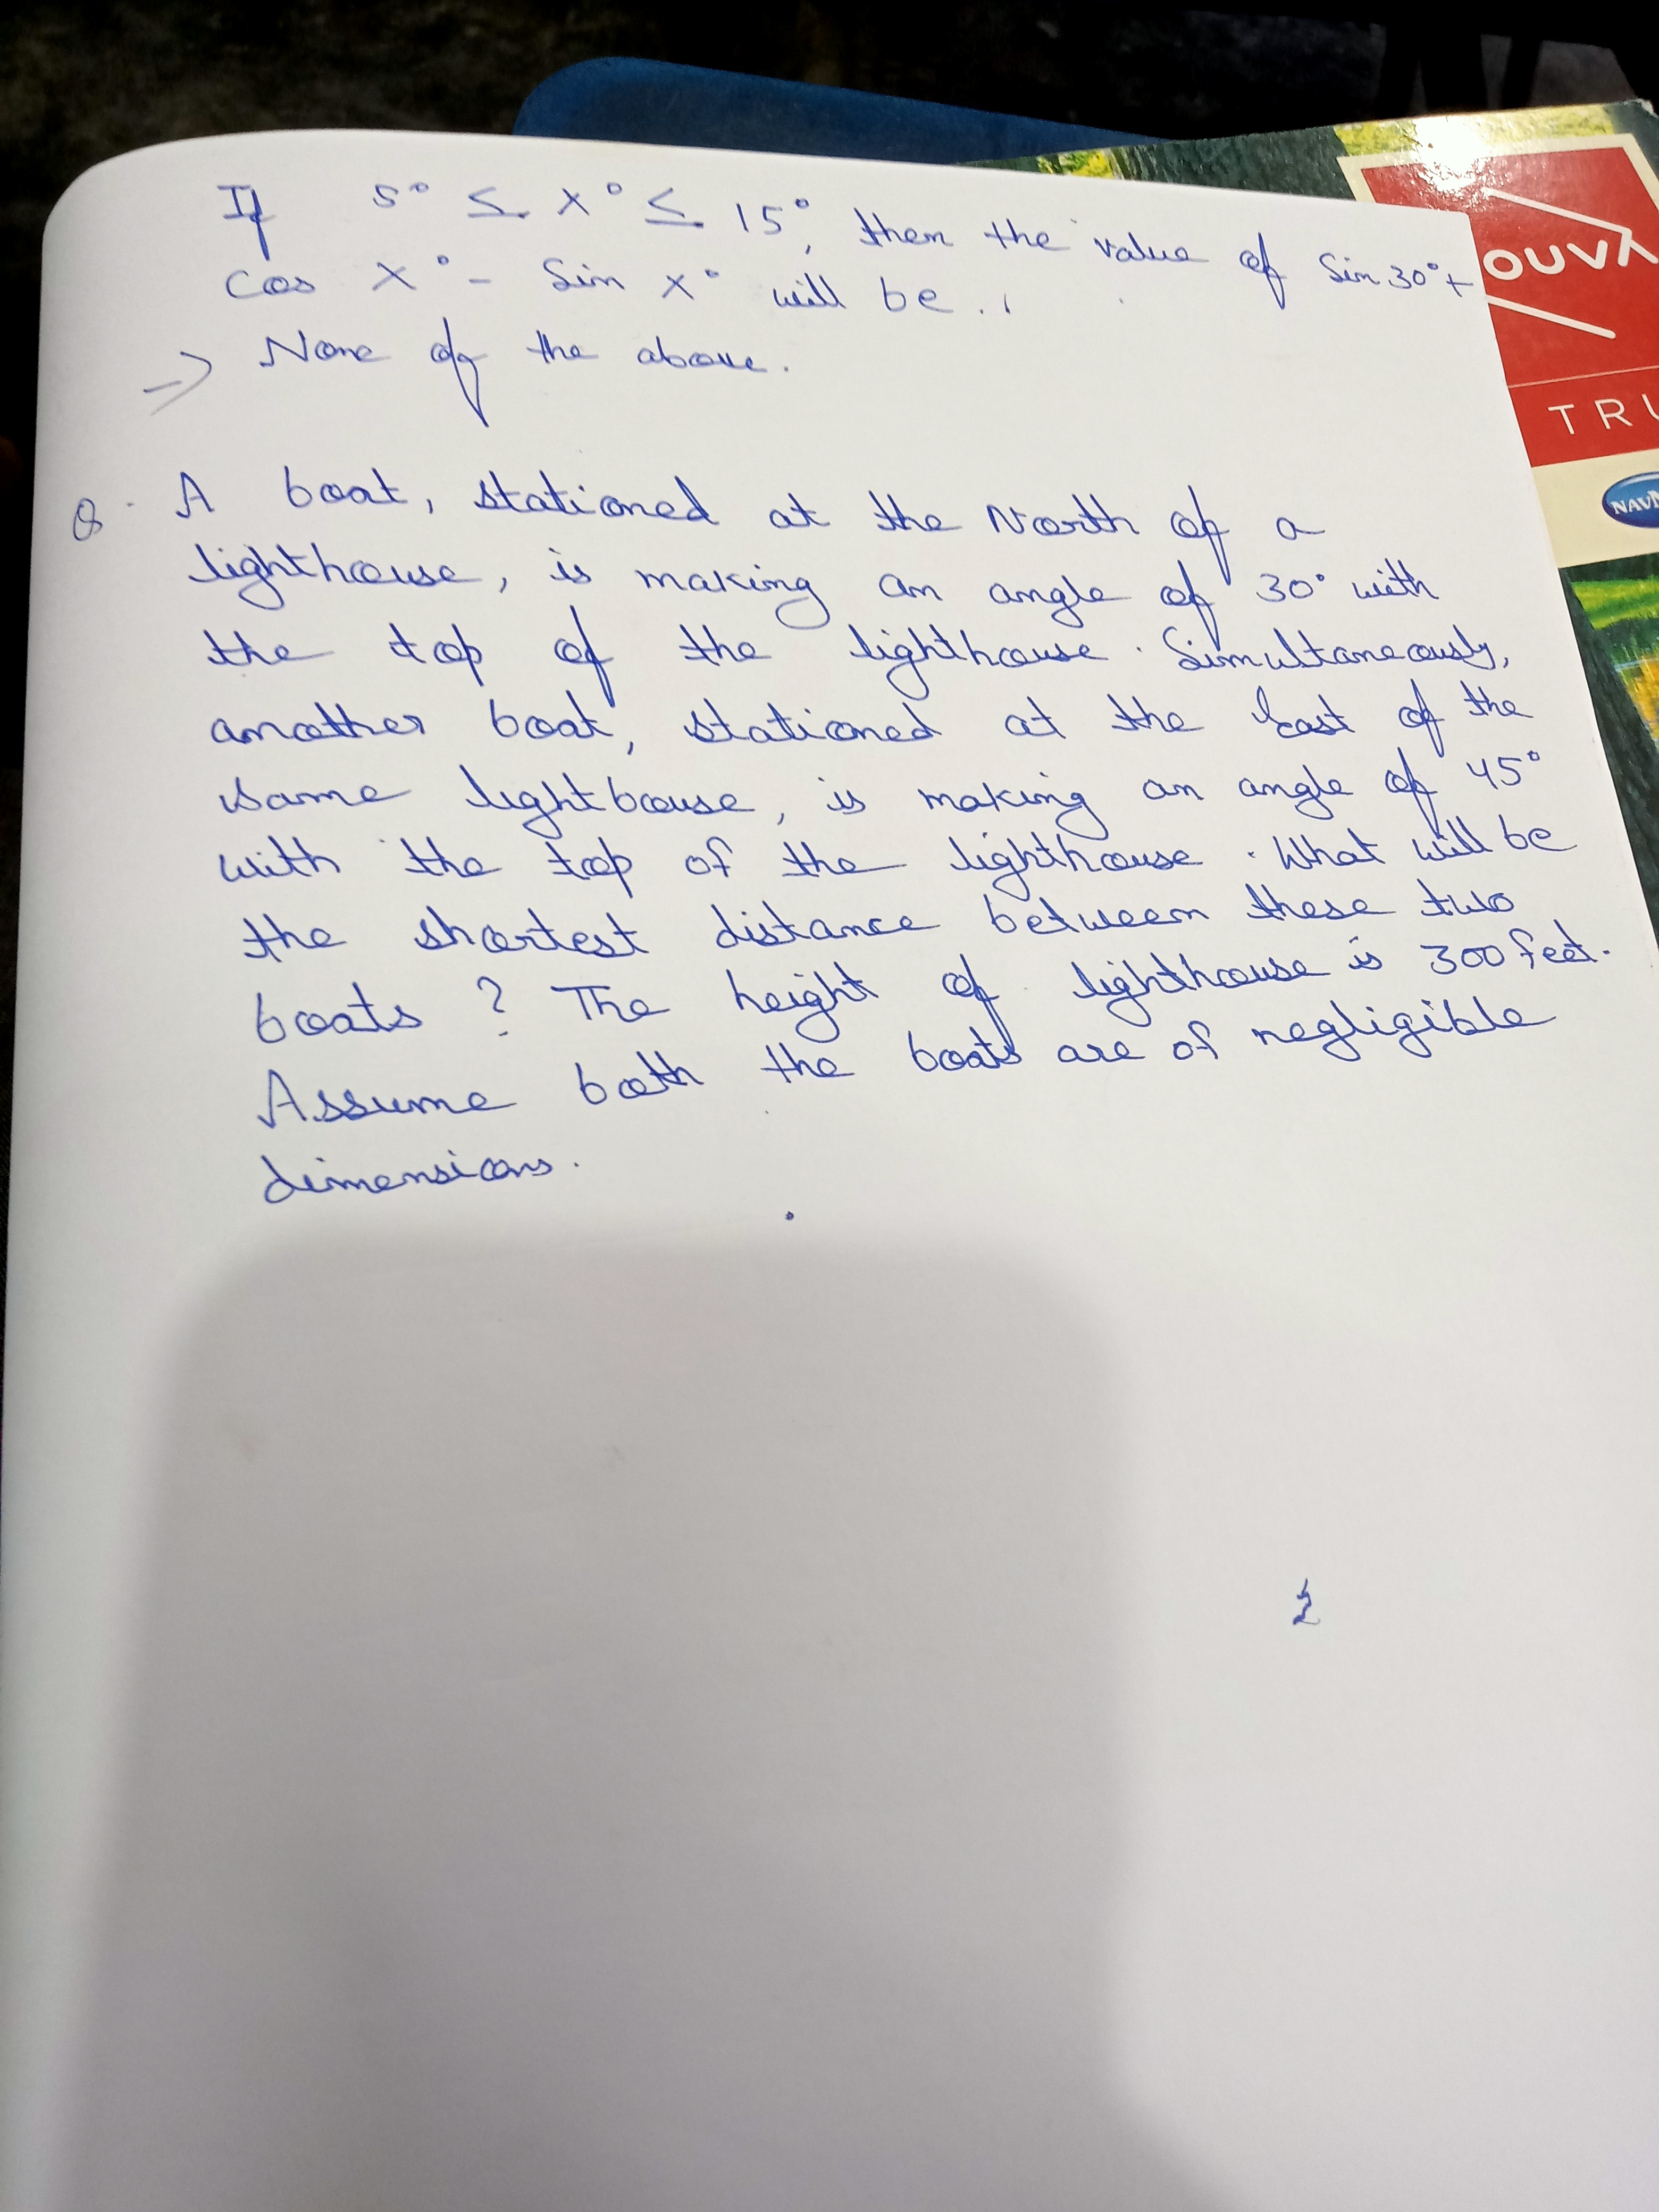 If 5° ≤ x° ≤ 15°, then the value of Sin 30° +
Cos x° - Sin x° will be..
⇒ None of the above.
Q. A boat, stationed at the North of a
lighthouse, is making an angle of 30° with
the top of the lighthouse. Simultaneously,
another boat, stationed at the East of the
same lighthouse, is making an angle of 45°
with the top of the lighthouse. What will be
the shortest distance between these two
boats? The height of lighthouse is 300 feet.
Assume both the boats are of negligible
dimensions.
2
OUVA
TRU
NAVN